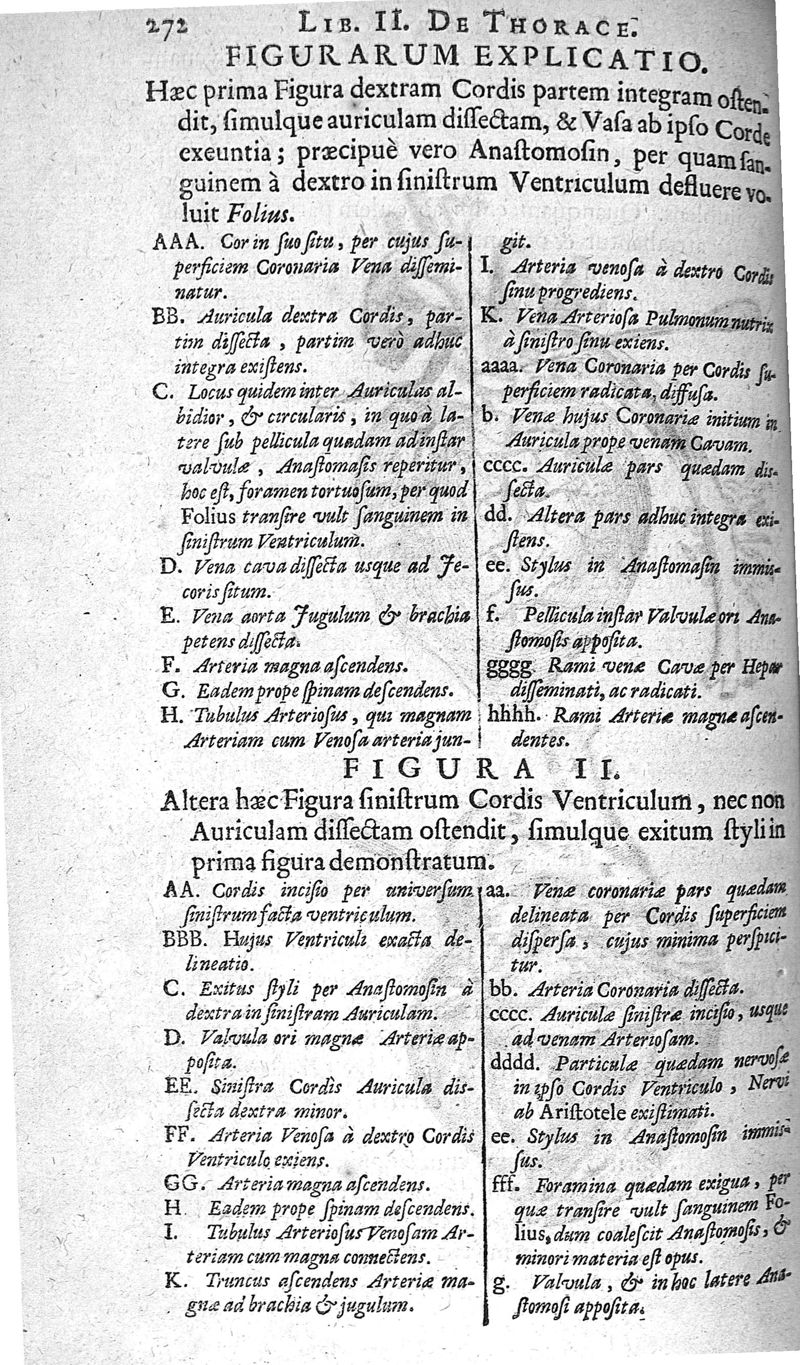 272 LIB. II. DE THORACE.
FIGURARUM EXPLICATIO.
Hæc prima Figura dextram Cordis partem integram osten-
dit, simulque auriculam dissectam, & Vasa ab ipso Corde
exeuntia; præcipuè vero Anastomosin, per quam san-
guinem à dextro in sinistrum Ventriculum defluere vo-
luit Folius.
AAA. Cor in suo situ, per cujus su-
perficiem Coronaria Vena dissemi-
natur.
BB. Auricula dextra Cordis, par-
tim dissecta, partim verò adhuc
integra existens.
C. Locus quidem inter Auriculas al-
bidior, & circularis, in quo à la-
tere sub pellicula quadam ad instar
valvulæ, Anastomasis reperitur,
hoc est, foramen tortuosum, per quod
Folius transire vult sanguinem in
sinistrum Ventriculum.
D. Vena cava dissecta usque ad Je-
coris situm.
E. Vena aorta Jugulum & brachia
petens dissecta.
F. Arteria magna ascendens.
G. Eadem prope spinam descendens.
H. Tubulus Arteriosus, qui magnam
Arteriam cum Venosa arteria jun-
git.
I. Arteria venosa à dextro Cordis
sinu progrediens.
K. Vena Arteriosa Pulmonum nutrix
à sinistro sinu exiens.
aaaa. Vena Coronaria per Cordis su-
perficiem radicata, diffusa.
b. Venæ hujus Coronariæ initium in
Auricula prope venam Cavam.
cccc. Auriculæ pars quædam dis-
secta.
dd. Altera pars adhuc integra exi-
stens.
ee. Stylus in Anastomasin immis-
sus.
f. Pellicula instar Valvulæ ori Ana-
stomosis apposita.
gggg. Rami venæ Cavæ per Hepar
disseminati, ac radicati.
hhhh. Rami Arteriæ magnæ ascen-
dentes.
FIGURA II.
Altera hæc Figura sinistrum Cordis Ventriculum, nec non
Auriculam dissectam ostendit, simulque exitum styli in
prima figura demonstratum.
AA. Cordis incisio per universum
sinistrum facta ventriculum.
BBB. Hujus Ventriculi exacta de-
lineatio.
C. Exitus styli per Anastomosin à
dextra in sinistram Auriculam.
D. Valvula ori magnæ Arteriæ ap-
posita.
EE. Sinistra Cordis Auricula dis-
secta dextra minor.
FF. Arteria Venosa à dextro Cordis
Ventriculo exiens.
GG. Arteria magna ascendens.
H. Eadem prope spinam descendens.
I. Tubulus Arteriosus Venosam Ar-
teriam cum magna connectens.
K. Truncus ascendens Arteriæ ma-
gnæ ad brachia & jugulum.
aa. Venæ coronariæ pars quædam
delineata per Cordis superficiem
dispersa, cujus minima perspici-
tur.
bb. Arteria Coronaria dissecta.
cccc. Auriculæ sinistræ incisio, usque
ad venam Arteriosam.
dddd. Particulæ quædam nervosæ
in ipso Cordis Ventriculo, Nervi
ab Aristotele existimati.
ee. Stylus in Anastomosin immis-
sus.
fff. Foramina quædam exigua, per
quæ transire vult sanguinem Fo-
lius, dum coalescit Anastomosis, &
minori materia est opus.
g. Valvula, & in hoc latere Ana-
stomosi apposita.